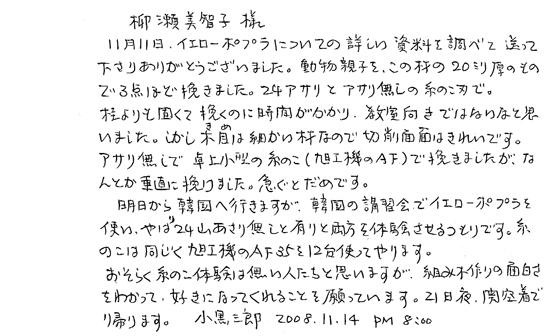 柳瀬美智子様
11月11日、イエローポプラについての詳しい資料を調べて送って
下さりありがとうございました。動物親子を、この材の20ミリ厚のもの
で3点ほど挽きました。24アサリとアサリ無しの糸のこ刃で。
桂よりも固くて挽くのに時間がかかり、教室向きではないなと思
いました。しかし木目は細かい材なので切削面面はきれいです。
アサリ無しで卓上小型の糸のこ(旭工機のAF)で挽きましたが、な
んとか垂直に挽けました。急ぐとだめです。
明日から韓国へ行きますが、韓国の講習会でイエローポプラを
使い、やはり24山あさり無しと有りと両方を体験させるつもりです。糸
のこは同じく旭工機のAF35を12台使ってやります。
おそらく糸のこ体験は無い人たちと思いますが、組み木作りの面白さ
をわかって、好きになってくれることを願っています。21日夜、関空着で
り帰ります。 小黒三郎 2008.11.14 PM 8:00